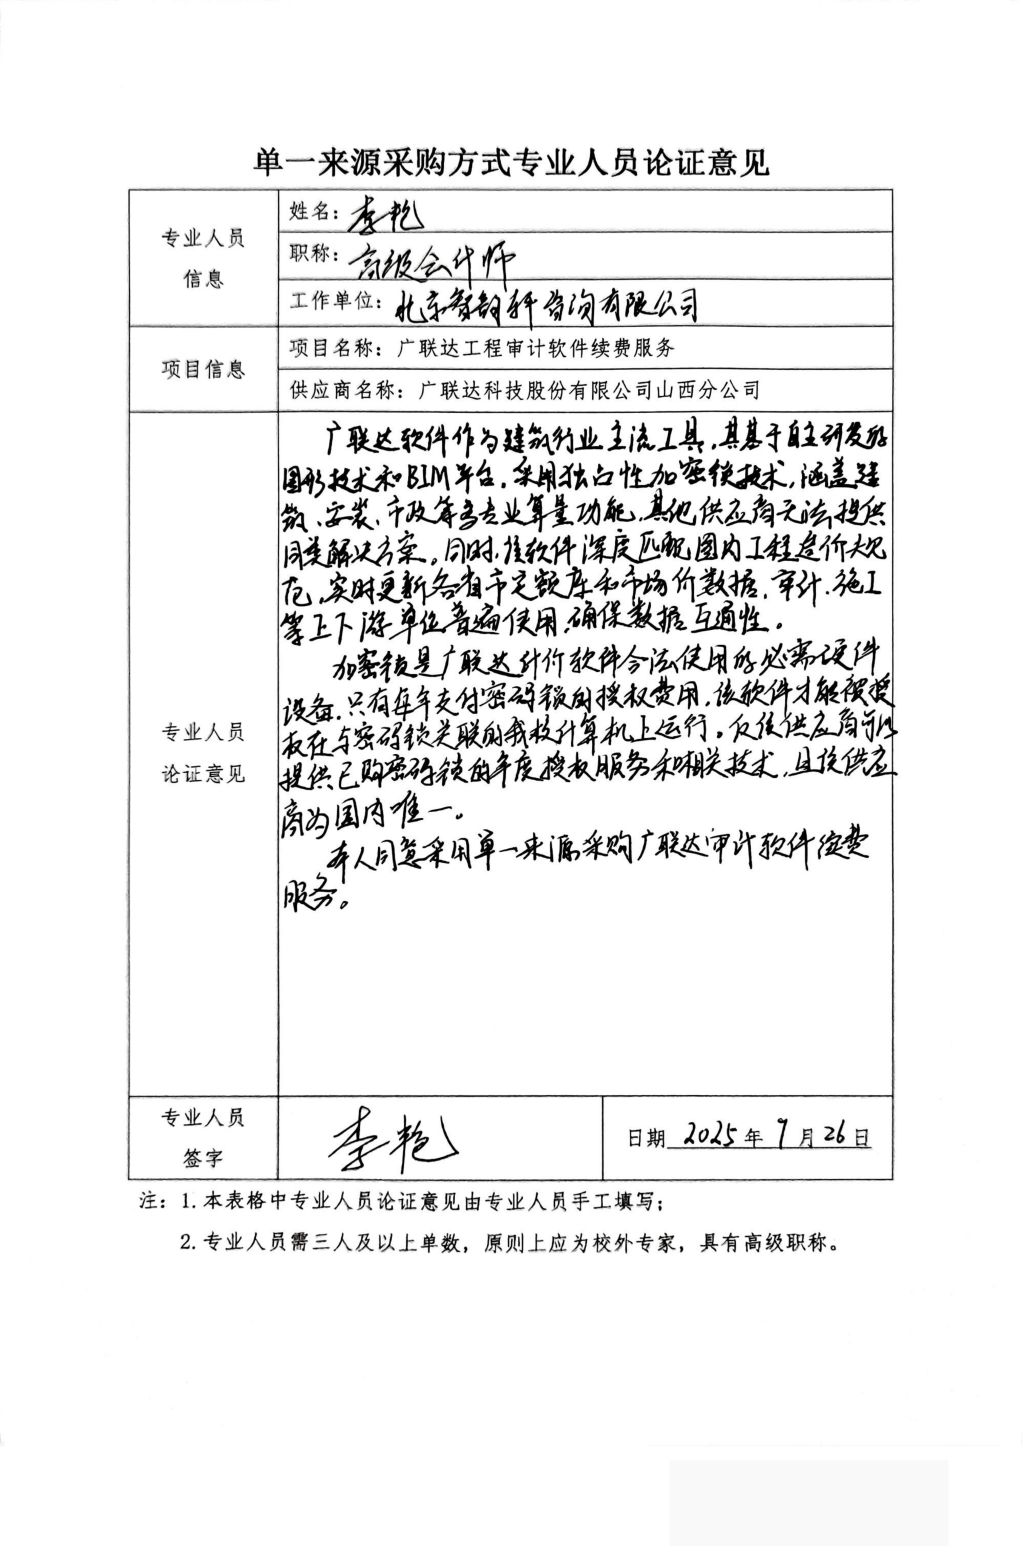 单一来源采购方式专业人员论证意见
专业人员
信息
姓名：李艳
职称：高级会计师
工作单位：北京智韵轩咨询有限公司
项目信息
项目名称：广联达工程审计软件续费服务
供应商名称：广联达科技股份有限公司山西分公司
专业人员
论证意见
广联达软件作为建筑行业主流工具，其基于自主研发的
图形技术和BIM平台，采用独占性加密锁技术，涵盖建
筑、安装、市政等多专业算量功能，其他供应商无法提供
同类解决方案。同时，该软件深度匹配国内工程造价规
范，实时更新各省市定额库和市场价数据，审计、施工
等上下游单位普遍使用，确保数据互通性。
加密锁是广联达计价软件合法使用的必需硬件
设备，只有每年支付密码锁的授权费用，该软件才能被授
权在与密码锁关联的我校计算机上运行。仅该供应商可以
提供已购密码锁的年度授权服务和相关技术，且该供应
商为国内唯一。
本人同意采用单一来源采购广联达审计软件续费
服务。
专业人员
签字
李艳
日期 2025 年 9 月 26 日
注：1.本表格中专业人员论证意见由专业人员手工填写；
2.专业人员需三人及以上单数，原则上应为校外专家，具有高级职称。